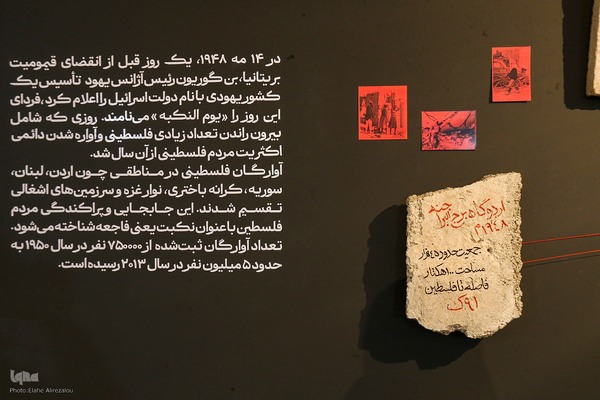 در ۱۴ مه ۱۹۴۸، یک روز قبل از انقضای قیمومیت
بریتانیا، بن گوریون رئیس آژانس یهود تأسیس یک
کشور یهودی با نام دولت اسرائیل را اعلام کرد، فردای
این روز را «یوم النکبه» می‌نامند. روزی که شامل
بیرون راندن تعداد زیادی فلسطینی و آواره شدن دائمی
اکثریت مردم فلسطینی از آن سال شد.
آوارگان فلسطینی در مناطقی چون اردن، لبنان،
سوریه، کرانه باختری، نوار غزه و سرزمین‌های اشغالی
تقسیم شدند. این جابجایی و پراکندگی مردم
فلسطین با عنوان نکبت یعنی فاجعه شناخته می‌شود.
تعداد آوارگان ثبت‌شده از ۷۵۰۰۰۰ نفر در سال ۱۹۵۰ به
حدود ۵ میلیون نفر در سال ۲۰۱۳ رسیده است.
اردوگاه برج البراجنه
۱۹۴۸م
جمعیت حدود
مساحت ۱۰۰ هکتار
فاصله تا فلسطین
۹۱ک
Photo:Elahe Alirezalou